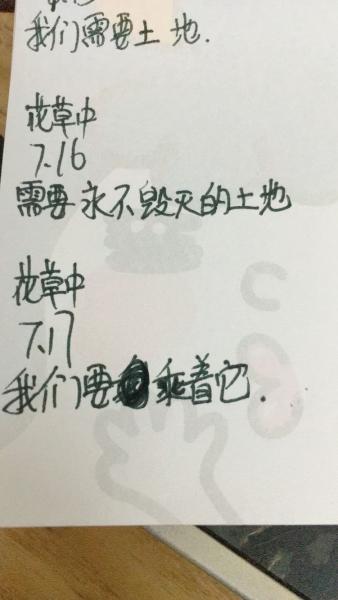 我们需要土地.
花草中
7.16
需要永不毁灭的土地
花草中
7.17
我们要乘着它.